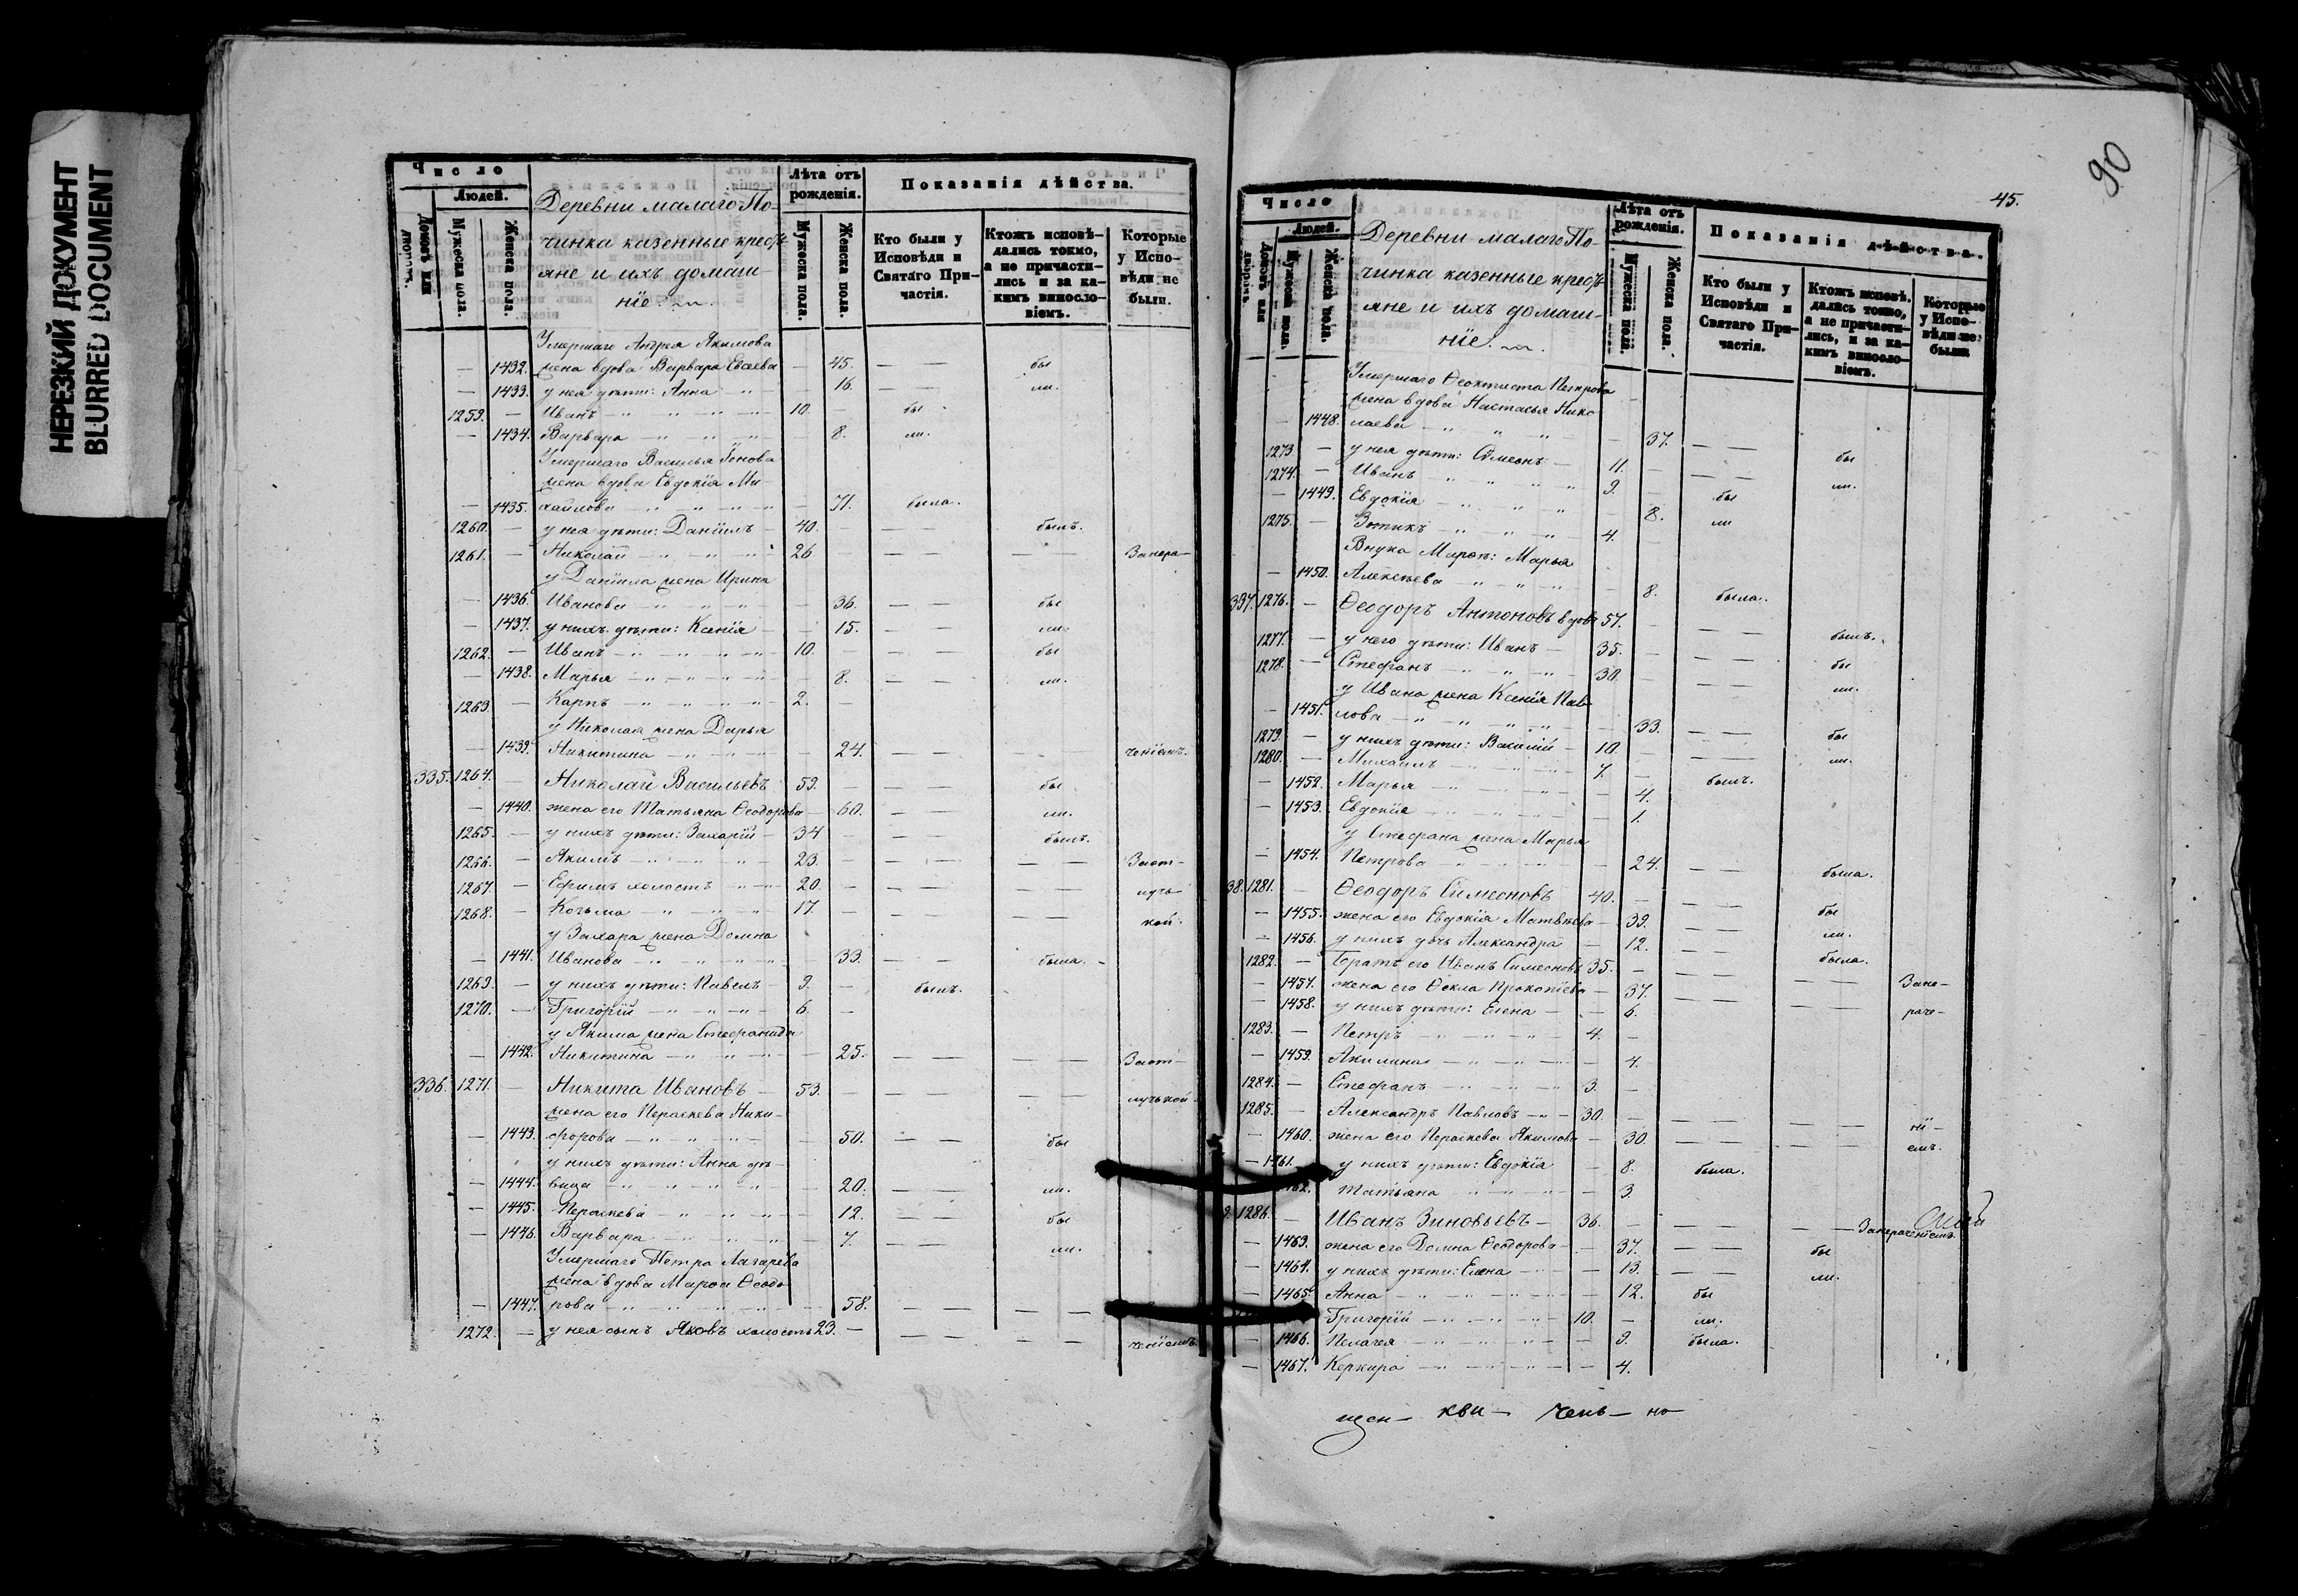 НЕРЕЗКИЙ ДОКУМЕНТ
BLURRED DOCUMENT
Число
Людей.
Домовъ или дворовъ.
Мужеска пола.
Женска пола.
Деревни малаго По-
чинка казенные кресть
яне и ихъ домаш-
ніе.
Лѣта отъ рожденія.
Мужеска пола.
Женска пола.
Показанія дѣйства.
Кто были у Исповѣди и Святаго Причастія.
Ктожъ исповѣдались токмо, а не причастились и за какимъ винословіемъ.
Которые у Исповѣди не были.
Умершаго Андрея Якимова
— 1432. жена вдова Варвара Евсеева — 45. — бы
— 1433. у нея дѣти: Анна 16. — — ли.
1259. — Иванъ 10. — бы
— 1434. Варвара — 8. ли.
Умершаго Василья
жена вдова Евдокія Ми-
— 1435. хайлова — 71. была.
1260. — у нея дѣти: Даніилъ — 40. былъ.
1261. — Николай 26 — — — — Занера-
у Даніила жена Ирина
— 1436. Иванова — 36. — — бы
— 1437. у нихъ дѣти: Ксенія — 15. — — ли.
1262. — Иванъ 10. — — — бы
— 1438. Марья — 8. — — ли.
1263. — Карпъ 2. —
у Николая жена Дарья
— 1439. Никитина — 24. — — — ченіемъ.
335. 1264. — Николай Васильевъ 59. — — — бы
— 1440. жена его Татьяна Ѳеодорова — 60. — — ли.
1265. — у нихъ дѣти: Захарій — 34 — — — былъ.
1266. — Якимъ 23. — — — — — Заот-
1267. — Ефимъ холостъ 20. — — — — — луч-
1268. — Козьма 17. — — — — — кой.
у Захара жена Домна
— 1441. Иванова — 33. — — была.
1269. — у нихъ дѣти: Павелъ — 9. — былъ.
1270. — Григорій 6. —
у Якима жена Стефанида
— 1442. Никитина — 25. — — — — Заот-
336. 1271. — Никита Ивановъ — 53. — — — — — лучькой.
жена его Параскева Ники-
— 1443. форова — 50. — — бы
у нихъ дѣти: Анна дѣ-
— 1444. вица — 20. — — ли.
— 1445. Параскева — 12. — — бы
— 1446. Варвара — 7. — — ли.
Умершаго Петра Лазарева
жена вдова Марѳа Ѳеодо
— 1447. рова — 58. — — — —
1272. — у нея сынъ Яковъ холостъ 23. — — — — — ченіемъ.
90
45.
Число
Людей.
Домовъ или дворовъ.
Мужеска пола.
Женска пола.
Деревни малаго По-
чинка казенные кресть
яне и ихъ домаш-
ніе.
Лѣта отъ рожденія.
Мужеска пола.
Женска пола.
Показанія дѣйства.
Кто были у Исповѣди и Святаго Причастія.
Ктожъ исповѣдались токмо, а не причастились, и за какимъ винословіемъ.
Которые у Исповѣди не были
Умершаго Ѳеоктиста Петрова
жена вдова Настасья Нико
— 1448. лаева — 37. — —
1273 — у нея дѣти: Симеонъ — 11. — — — бы
1274. — Иванъ 9. — — — ли.
— 1449. Евдокія — 8. бы
1275. — Зотикъ 4. — ли
Внука Марья
— 1450. Алексѣева — 8. была.
337. 1276. — Ѳеодоръ Антоновъ вдовъ 57. — — — былъ.
1277. — у него дѣти: Иванъ 35. — — — бы
1278. — Стефанъ 30. — — — ли.
у Ивана жена Ксенія Пав-
— 1451. лова — 33. — — бы
1279. — у нихъ дѣти: Василій — 10. — — — ли.
1280. — Михаилъ 7. — былъ.
— 1452. Марья — 4.
— 1453. Евдокія — 1.
у Стефана жена Марья
— 1454. Петрова — 24. — — была.
38. 1281. — Ѳеодоръ Симеоновъ 40. — — — бы
— 1455. жена его Евдокія Матвѣева — 39. — — ли.
— 1456. у нихъ дочь Александра — 12. — — была.
1282. — Братъ его Иванъ Симеоновъ 35. — — — — — Зане-
— 1457. жена его Ѳекла Прокопіева — 37. — — — — раче-
— 1458. у нихъ дѣти: Елена — — 6.
1283. — Петръ 4. —
— 1459. Акилина — 4.
1284. — Стефанъ 3. —
1285. — Александръ Павловъ 30. — — — — — ні-
— 1460. жена его Параскева Якимова — 30. — — — — емъ.
— 1461. у нихъ дѣти: Евдокія — 8. была.
1462. Татьяна — 3.
9. 1286. — Иванъ Зиновьевъ — 36. — — — — — Занераченіемъ.
— 1463. жена его Домна Ѳеодорова — 37. — — бы
— 1464. у нихъ дѣти: Елена — 13. — — ли.
— 1465. Анна — 12. бы
Григорій 10. — ли.
— 1466. Пелагея — 9. была.
— 1467. Керкира — 4.
щен- кви- чень- но